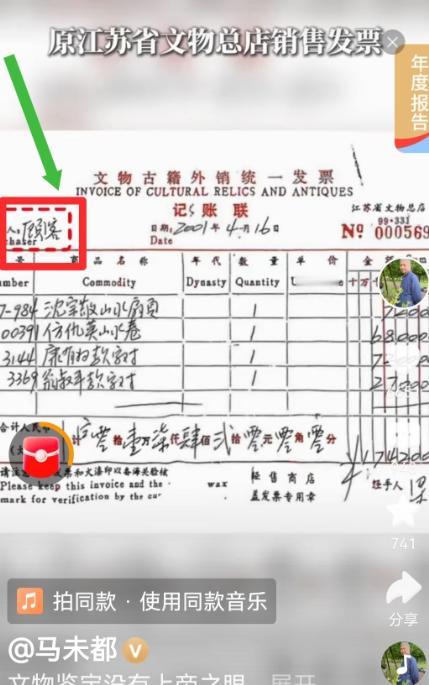 原江苏省文物总店销售发票
年度报告
文物古籍外销统一发票
INVOICE OF CULTURAL RELICS AND ANTIQUES
记账联
江苏省文物总店
人: 顾客
日期: 2001年4月16日
99·331
chaser
Date
№ 000569
号 商品名称 年代 数量 单价 金
umber Commodity Dynasty Quantity
7-984 沈宗敬山水扇页 1
00391 仿仇英山水卷 1 68000
3144 康有为款字对 1
3369 翁叔平款字对 1
合计人民币
计 零拾壹万柒仟肆佰 拾零元零角零分
请注 发票和火漆印以备海关验核
Please keep this invoice and the wax
经售商店
mark for verification by the cus
盖发票专用章
经手人
741
分享
拍同款 · 使用同款音乐
@马未都
文物鉴定没有上帝之眼 展开